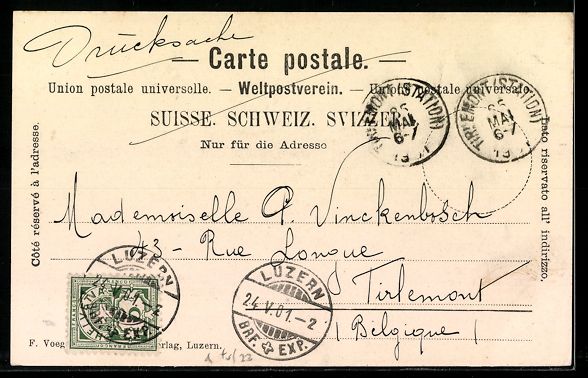 Drucksache
Carte postale.
Union postale universelle. – Weltpostverein. – Unione postale universale.
SUISSE. SCHWEIZ. SVIZZERA.
Nur für die Adresse
Côté réservé à l'adresse.
Lato riservato all' indirizzo.
TIRLEMONT (STATION)
MAI
6-7
TIRLEMONT (STATION)
MAI
6-7
Mademoiselle P Vinckenbosch
43 - Rue Longue
Tirlemont
(Belgique)
LUZERN
24.V.01.-2
BRF. EXP.
LUZERN
24.V.01.-2
BRF. EXP.
F. Voeg rlag, Luzern.